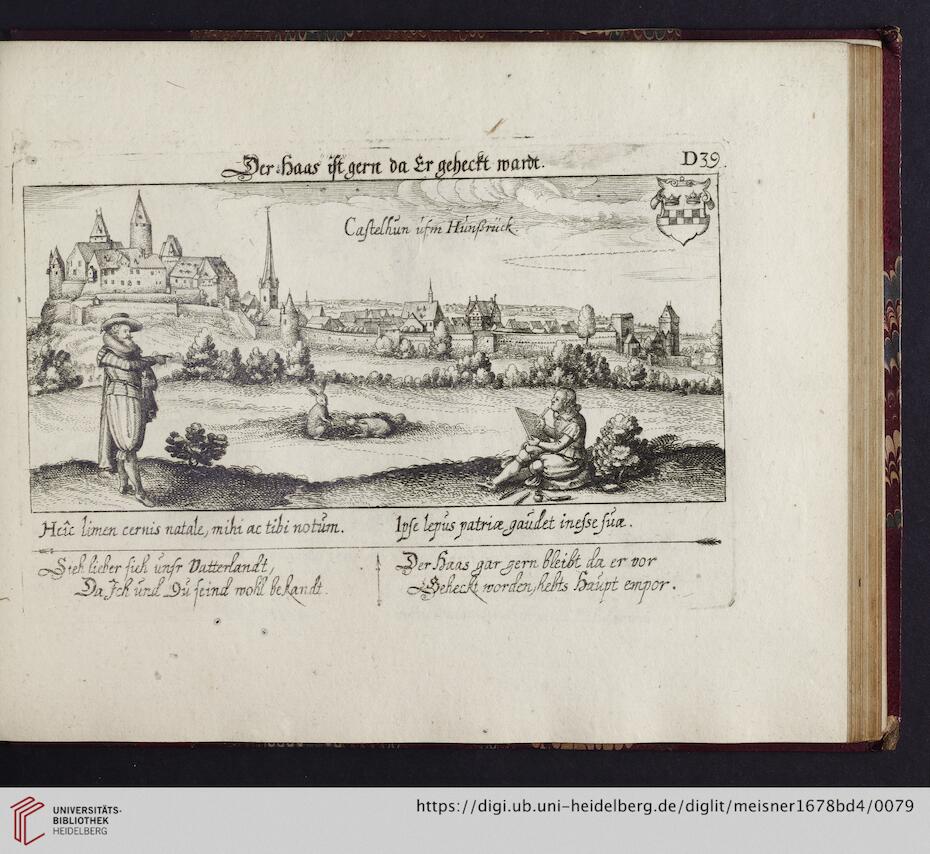 Der Haas ist gern da Er geheckt wardt.
D39.
Castelhun ufm Hunßrück.
Heîc limen cernis natale, mihi ac tibi notum.
Ipse lepus patriæ gaudet inesse suæ.
Sieh lieber sieh unsr Vatterlandt,
Da Ich und Du seind wohl bekandt.
Der Haas gar gern bleibt da er vor
Geheckt worden, hebts Haupt empor.
UNIVERSITÄTS-
BIBLIOTHEK
HEIDELBERG
https://digi.ub.uni-heidelberg.de/diglit/meisner1678bd4/0079